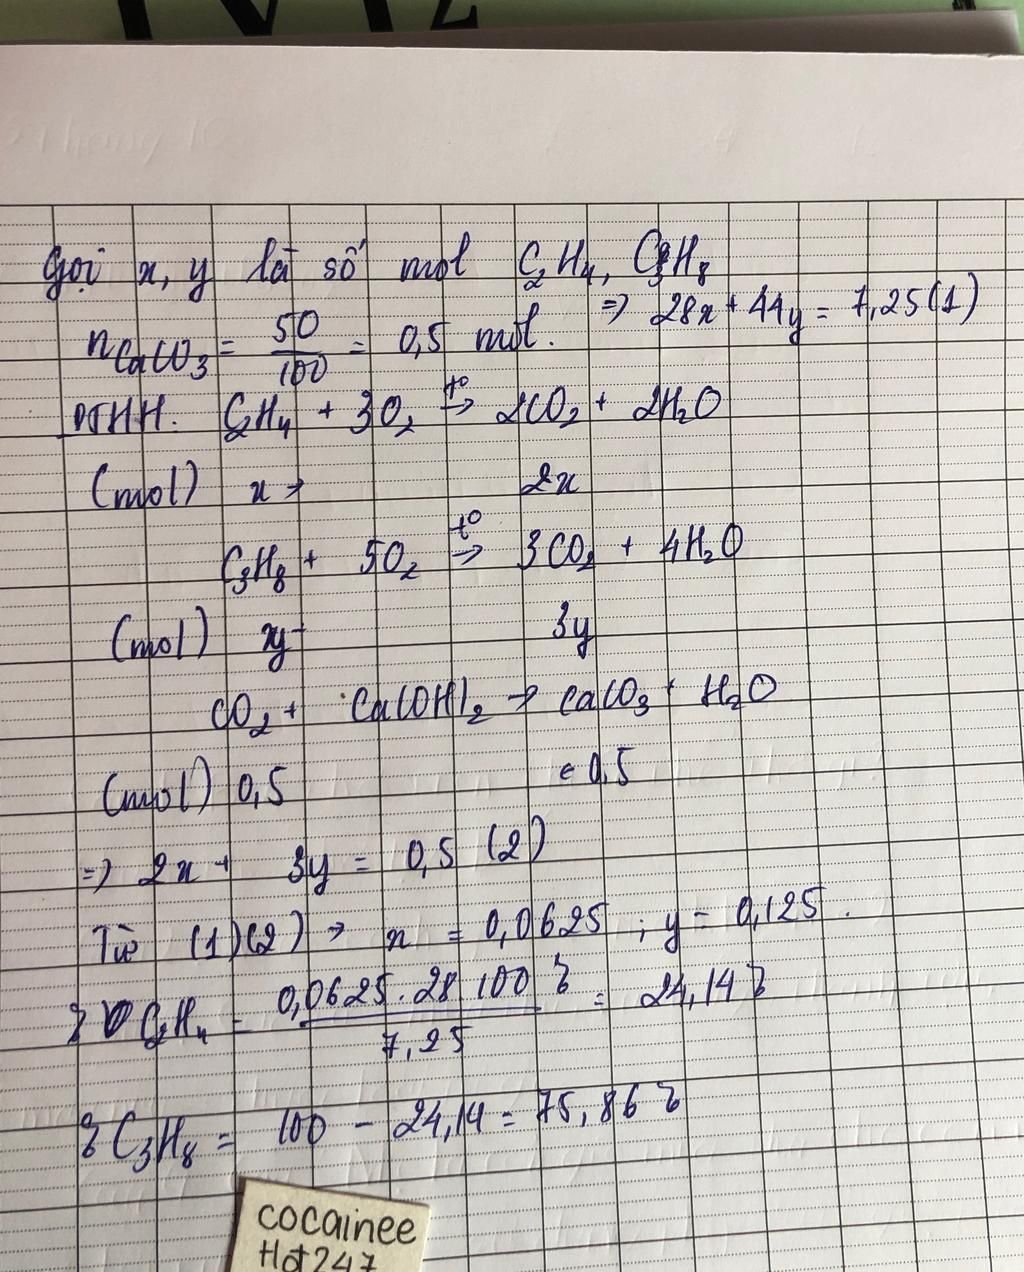 Gọi x, y là số mol C₂H₄, C₃H₈
⇒ 28x + 44y = 7,25 (1)
nCaCO₃ = 50/100 = 0,5 mol.
PTHH. C₂H₄ + 3O₂ →(t°) 2CO₂ + 2H₂O
(mol) x → 2x
C₃H₈ + 5O₂ →(t°) 3CO₂ + 4H₂O
(mol) y → 3y
CO₂ + Ca(OH)₂ → CaCO₃ + H₂O
(mol) 0,5 ← 0,5
⇒ 2x + 3y = 0,5 (2)
Từ (1)(2) → x = 0,0625 ; y = 0,125.
% C₂H₄ = 0,0625.28 100 % / 7,25 = 24,14%
% C₃H₈ = 100 - 24,14 = 75,86%
cocainee
Hot247